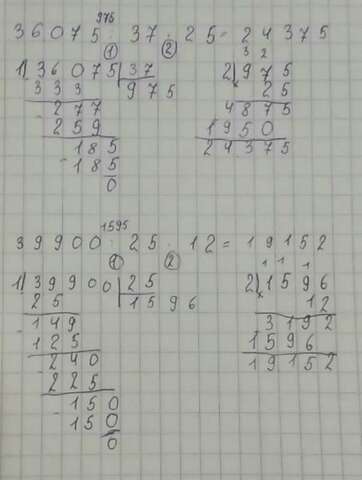 975
36075 : 37 · 25 = 24375
① ②
3 2
1) 36075 | 37 2) 975
333 975 25
- 277 4875
259 1950
185 24375
- 185
0
1595
39900 : 25 · 12 = 19152
① ②
1 1 1
1) 39900 | 25 2) 1596
25 1596 12
- 149 3192
125 1596
- 240 19152
225
- 150
- 150
0